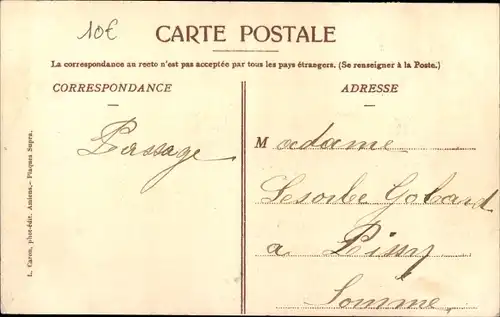 10€
CARTE POSTALE
La correspondance au recto n'est pas acceptée par tous les pays étrangers. (Se renseigner à la Poste.)
CORRESPONDANCE
ADRESSE
Passage
Madame
Lesorbe Gobard
a Pissy
Somme
L. Caron, phot-édit. Amiens,- Plaques Supra.